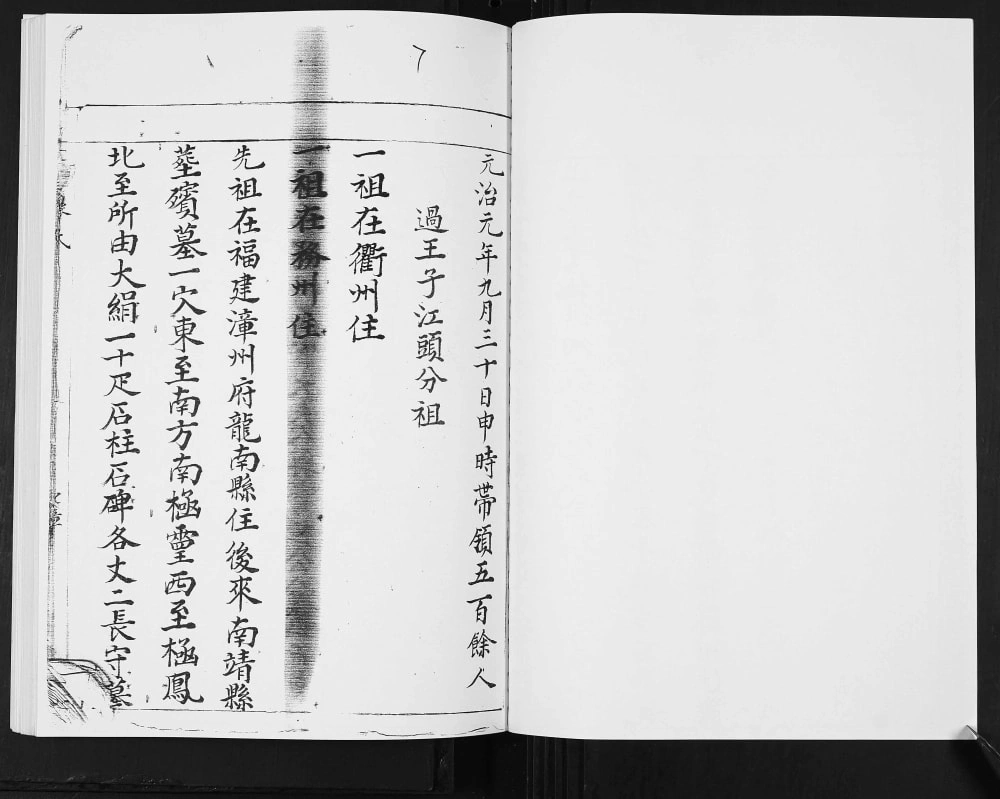 元治元年九月三十日申時帶領五百餘人
過王子江頭分祖
一祖在衢州住
一祖在務州住
先祖在福建漳州府龍南縣住後來南靖縣
塟殯墓一穴東至南方南極靈西至極鳳
北至所由大絹一十疋石柱石碑各丈二長守墓